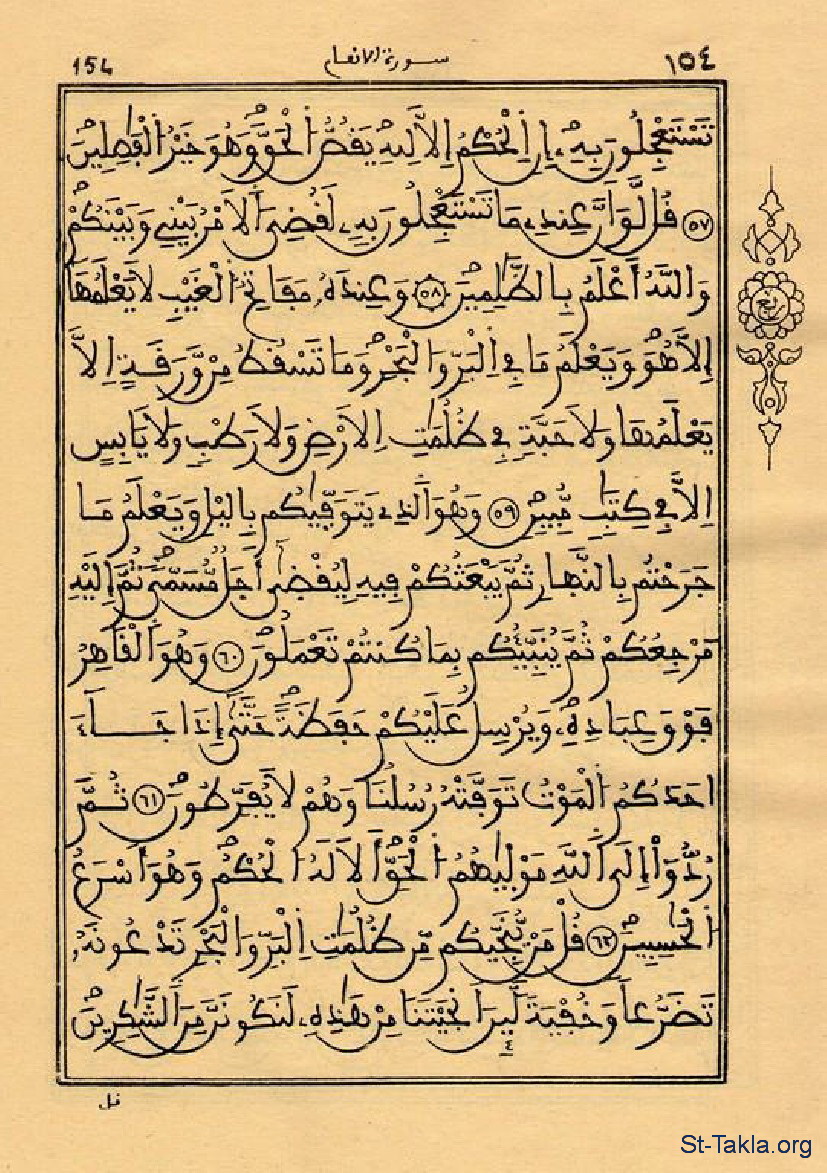 154 سورة الانعام ١٥٤
تَسْتَعْجِلُونَ بِهِۦٓ إِنِ اِ۬لْحُكْمُ إِلَّا لِلهِ يَقُصُّ اُ۬لْحَقَّ وَهُوَ خَيْرُ اُ۬لْفَٰصِلِينَ
٥٧ قُل لَّوَ اَنَّ عِندِے مَا تَسْتَعْجِلُونَ بِهِۦ لَقُضِيَ اَ۬لَامْرُ بَيْنِے وَبَيْنَكُمْ
وَاللَّهُ أَعْلَمُ بِالظَّٰلِمِينَ ٥٨ وَعِندَهُۥ مَفَاتِحُ اُ۬لْغَيْبِ لَا يَعْلَمُهَا
إِلَّا هُوَ وَيَعْلَمُ مَا فِے اِ۬لْبَرِّ وَالْبَحْرِ وَمَا تَسْقُطُ مِنْ وَّرَقَةٍ اِلَّا
يَعْلَمُهَا وَلَا حَبَّةٍ فِے ظُلُمَٰتِ اِ۬لَارْضِ وَلَا رَطْبٍ وَلَا يَابِسٍ
اِلَّا فِے كِتَٰبٍ مُّبِينٍ ٥٩ وَهُوَ اَ۬لذِے يَتَوَفّٰيٰكُم بِاليْلِ وَيَعْلَمُ مَا
جَرَحْتُم بِالنَّهارِ ثُمَّ يَبْعَثُكُمْ فِيهِ لِيُقْضَىٰٓ أَجَلٌ مُّسَمّىٗ ثُمَّ إِلَيْهِ
مَرْجِعُكُمْ ثُمَّ يُنَبِّئُكُم بِمَا كُنتُمْ تَعْمَلُونَ ٦٠ وَهُوَ اَ۬لْقَاهِرُ
فَوْقَ عِبَادِهِۦ وَيُرْسِلُ عَلَيْكُمْ حَفَظَةً حَتَّىٰٓ إِذَا جَآءَ
احَدَكُمُ اُ۬لْمَوْتُ تَوَفَّتْهُ رُسُلُنَا وَهُمْ لَا يُفَرِّطُونَ ٦١ ثُمَّ
رُدُّوٓاْ إِلَى اَ۬للَّهِ مَوْلٰيٰهُمُ اُ۬لْحَقِّ أَلَا لَهُ اُ۬لْحُكْمُ وَهُوَ أَسْرَعُ
اُ۬لْحَٰسِبِينَ ٦٢ قُلْ مَنْ يُّنَجِّيكُم مِّن ظُلُمَٰتِ اِ۬لْبَرِّ وَالْبَحْرِ تَدْعُونَهُۥ
تَضَرُّعاً وَخُفْيَةً لَّئِنَ اَنجَيْتَنَا مِنْ هَٰذِهِۦ لَنَكُونَنَّ مِنَ اَ۬لشَّٰكِرِينَ
قل
St-Takla.org